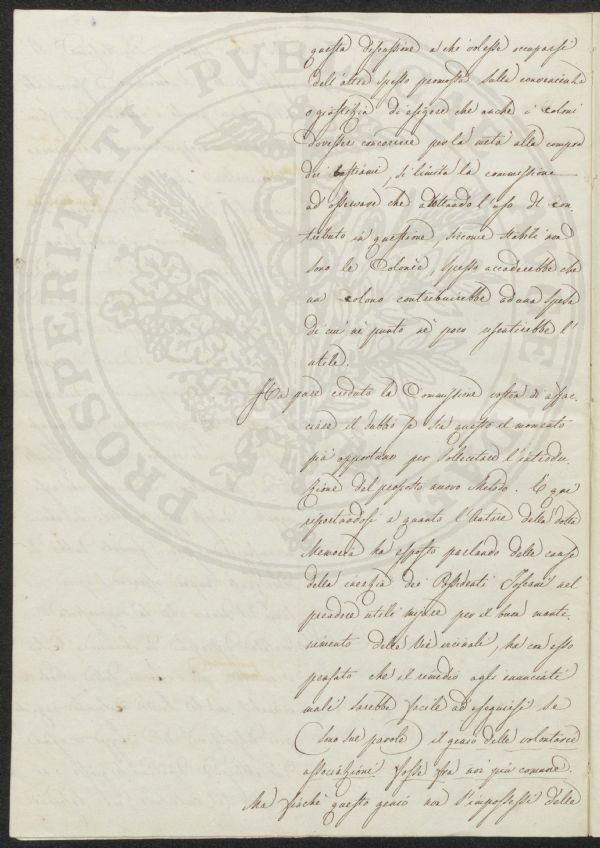 questa discussione a chi volesse occuparsi
dell'altra spesso promossa sulla convenienza
o giustizia di esigere che anche i coloni
dovessero concorrere per la metà alla compra
dei bestiami, si limita la commissione
ad osservare che adottando l'uso di con-
tributo in questione, siccome stabili non
sono le Colonie spesso accaderebbe che
un colono contribuirebbe ad una spesa
di cui nè punto nè poco risentirebbe l'
utile.
Ha pure creduto la Commissione vostra di affac-
ciare il dubbio se sia questo il momento
più opportuno per sollecitare l'introdu-
zione del proposto nuovo Metodo. E qui
riportandosi a quanto l'Autore della dotta
Memoria ha esposto parlando delle cause
della inerzia dei Possidenti Toscani nel
prendere utili misure per il buon mante-
nimento delle Vie vicinali, ha con esso
pensato che il rimedio agli enunciati
mali sarebbe facile ad eseguirsi se
(sono sue parole) il genio delle volontarie
associazioni fosse fra noi più comune.
Ma finchè questo genio non s'impossessi delle
PROSPERITATI PUBLICAE